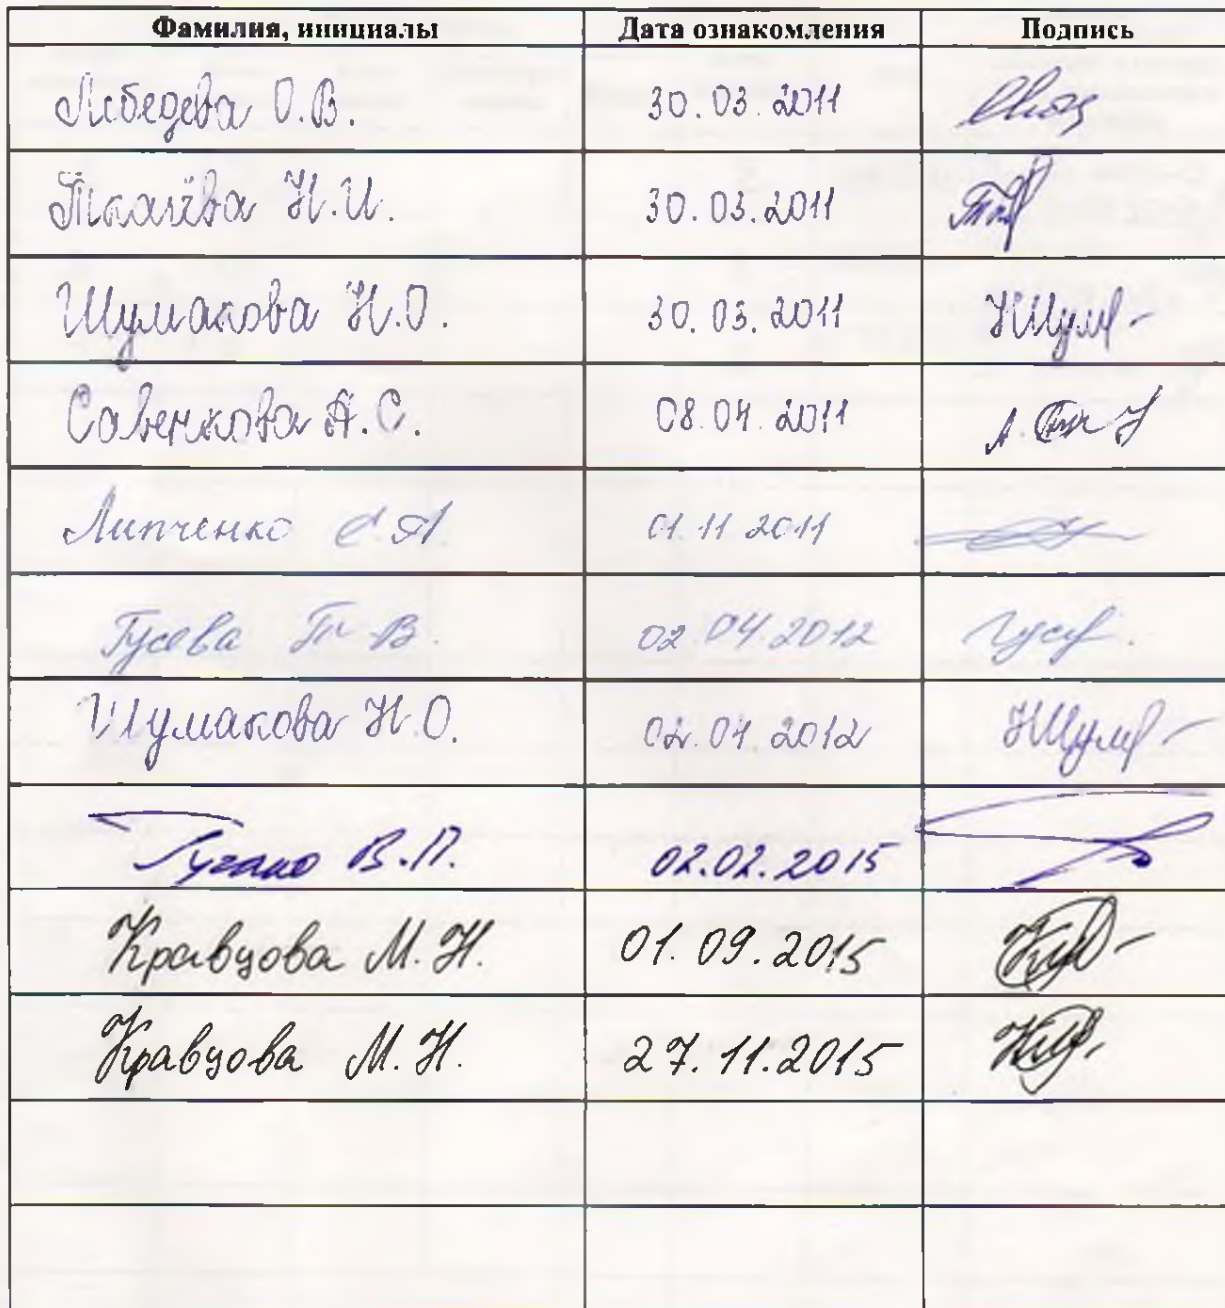 Фамилия, инициалы Дата ознакомления Подпись
Лебедева О.В. 30.03.2011
Ткачёва Н.И. 30.03.2011
Шумакова Н.О. 30.03.2011 НШум
Савенкова А.С. 08.04.2011
Липченко 01.11.2011
Гусева Т.В. 02.04.2012 Гусе
Шумакова Н.О. 02.04.2012 НШум
В.П. 02.02.2015
Кравцова М.Н. 01.09.2015
Кравцова М.Н. 27.11.2015